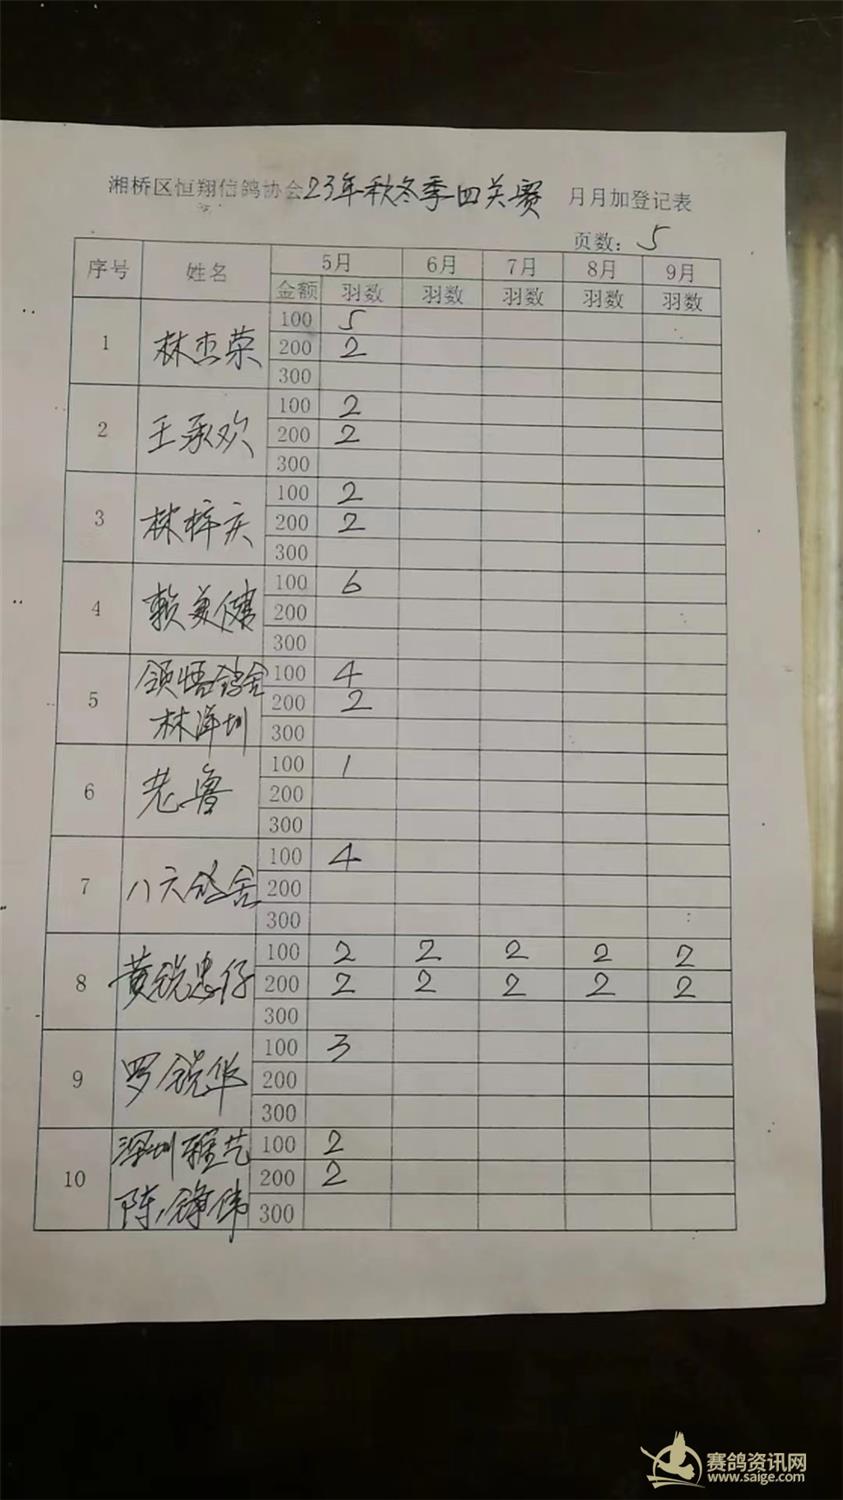 湘桥区恒翔信鸽协会23年秋冬季四关赛 月月加登记表
页数：5
序号 姓名 5月 6月 7月 8月 9月
金额 羽数 羽数 羽数 羽数 羽数
1 林杰荣 100 5
200 2
300
2 王承欢 100 2
200 2
300
3 林梓庆 100 2
200 2
300
4 赖美 100 6
200
300
5 领悟鸽舍 100 4
林泽圳 200 2
300
6 老鲁 100 1
200
300
7 八六鸽舍 100 4
200
300
8 黄锐忠仔 100 2 2 2 2 2
200 2 2 2 2 2
300
9 罗锐华 100 3
200
300
10 深圳 100 2
陈 伟 200 2
300
赛鸽资讯网
www.saige.com